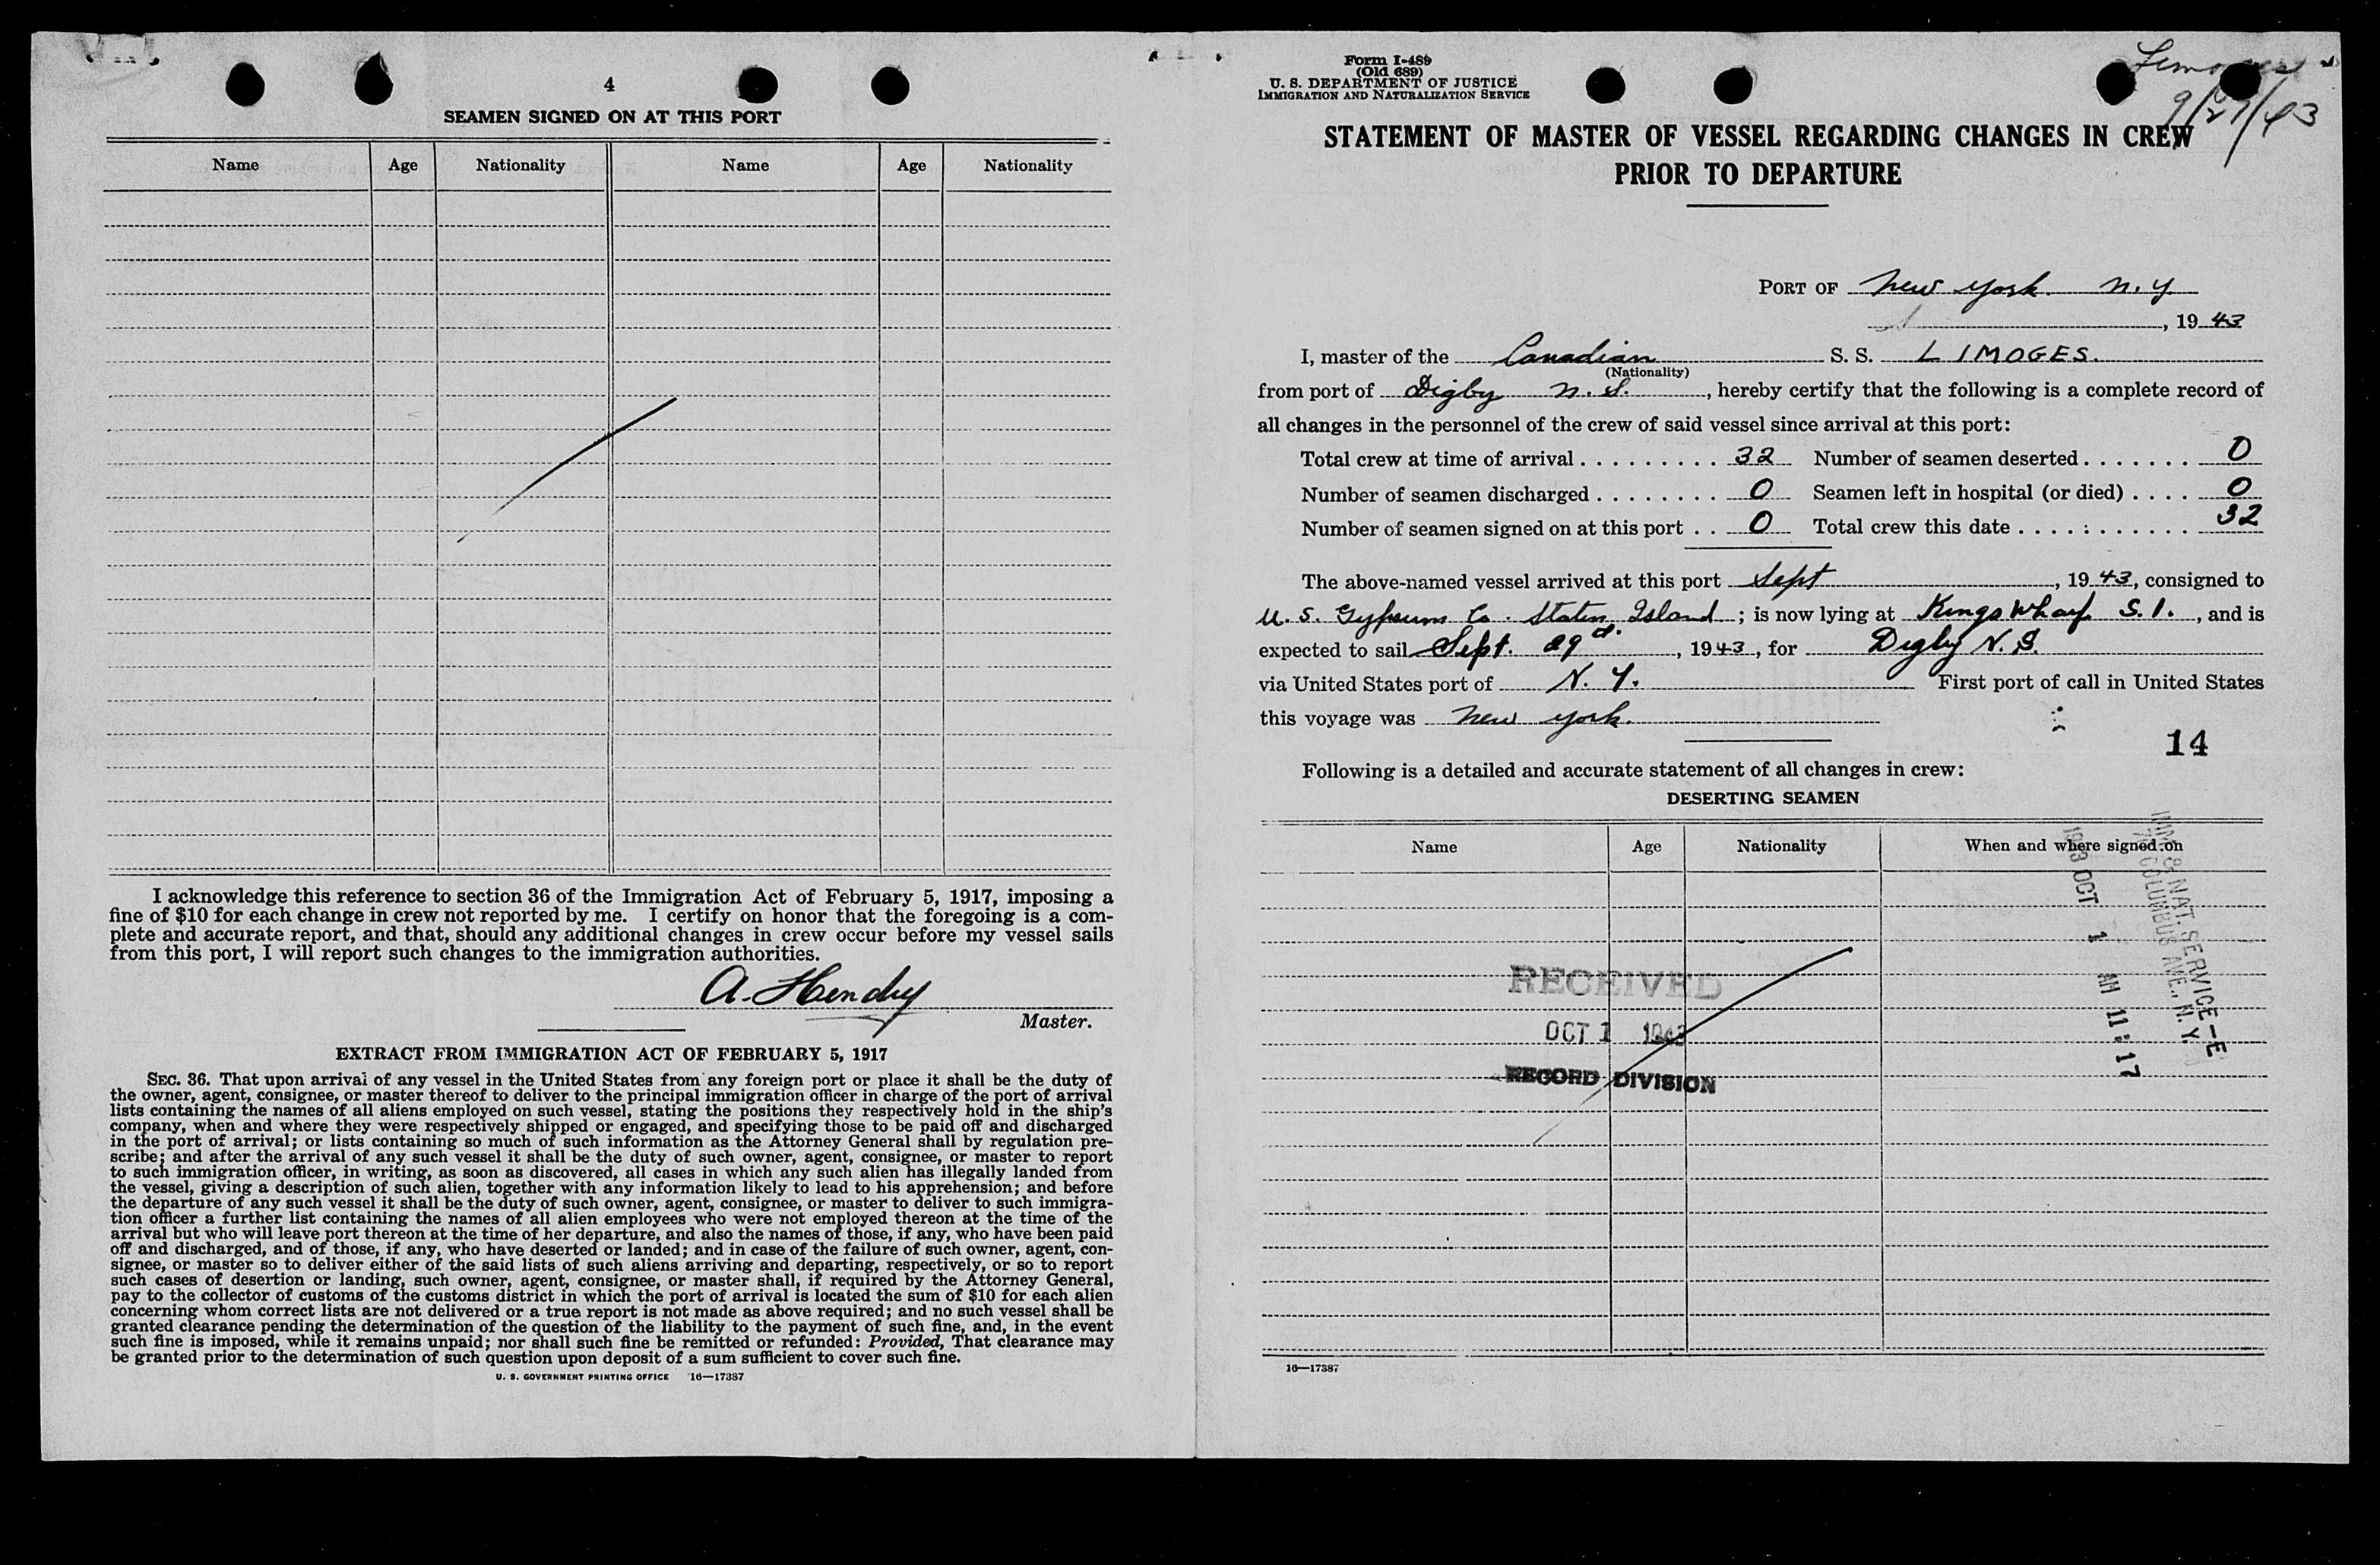 4
SEAMEN SIGNED ON AT THIS PORT
Name Age Nationality Name Age Nationality
I acknowledge this reference to section 36 of the Immigration Act of February 5, 1917, imposing a
fine of $10 for each change in crew not reported by me. I certify on honor that the foregoing is a com-
plete and accurate report, and that, should any additional changes in crew occur before my vessel sails
from this port, I will report such changes to the immigration authorities.
A. Hendry
Master.
EXTRACT FROM IMMIGRATION ACT OF FEBRUARY 5, 1917
SEC. 36. That upon arrival of any vessel in the United States from any foreign port or place it shall be the duty of
the owner, agent, consignee, or master thereof to deliver to the principal immigration officer in charge of the port of arrival
lists containing the names of all aliens employed on such vessel, stating the positions they respectively hold in the ship's
company, when and where they were respectively shipped or engaged, and specifying those to be paid off and discharged
in the port of arrival; or lists containing so much of such information as the Attorney General shall by regulation pre-
scribe; and after the arrival of any such vessel it shall be the duty of such owner, agent, consignee, or master to report
to such immigration officer, in writing, as soon as discovered, all cases in which any such alien has illegally landed from
the vessel, giving a description of such alien, together with any information likely to lead to his apprehension; and before
the departure of any such vessel it shall be the duty of such owner, agent, consignee, or master to deliver to such immigra-
tion officer a further list containing the names of all alien employees who were not employed thereon at the time of the
arrival but who will leave port thereon at the time of her departure, and also the names of those, if any, who have been paid
off and discharged, and of those, if any, who have deserted or landed; and in case of the failure of such owner, agent, con-
signee, or master so to deliver either of the said lists of such aliens arriving and departing, respectively, or so to report
such cases of desertion or landing, such owner, agent, consignee, or master shall, if required by the Attorney General,
pay to the collector of customs of the customs district in which the port of arrival is located the sum of $10 for each alien
concerning whom correct lists are not delivered or a true report is not made as above required; and no such vessel shall be
granted clearance pending the determination of the question of the liability to the payment of such fine, and, in the event
such fine is imposed, while it remains unpaid; nor shall such fine be remitted or refunded: Provided, That clearance may
be granted prior to the determination of such question upon deposit of a sum sufficient to cover such fine.
U. S. GOVERNMENT PRINTING OFFICE 16—17387
Form I-489
(Old 689)
U. S. DEPARTMENT OF JUSTICE
IMMIGRATION AND NATURALIZATION SERVICE
Limoges
9/29/43
STATEMENT OF MASTER OF VESSEL REGARDING CHANGES IN CREW
PRIOR TO DEPARTURE
PORT OF New York N.Y
, 19 43
I, master of the Canadian S. S. LIMOGES.
(Nationality)
from port of Digby N.S. , hereby certify that the following is a complete record of
all changes in the personnel of the crew of said vessel since arrival at this port:
Total crew at time of arrival . . . . . . . . . 32 Number of seamen deserted . . . . . . . 0
Number of seamen discharged . . . . . . . . 0 Seamen left in hospital (or died) . . . . 0
Number of seamen signed on at this port . . 0 Total crew this date . . . . . . . . . . . 32
The above-named vessel arrived at this port Sept , 19 43, consigned to
U. S. Gypsum Co. Staten Island ; is now lying at Kings Wharf S. I. , and is
expected to sail Sept. 29 , 19 43 , for Digby N. S.
via United States port of N. Y. First port of call in United States
this voyage was New York.
14
Following is a detailed and accurate statement of all changes in crew:
DESERTING SEAMEN
Name Age Nationality When and where signed on
IMM & NAT. SERVICE—E
70 COLUMBUS AVE., N. Y.
1943 OCT 1 AM 11:17
RECEIVED
OCT 1 1943
RECORD DIVISION
16—17387